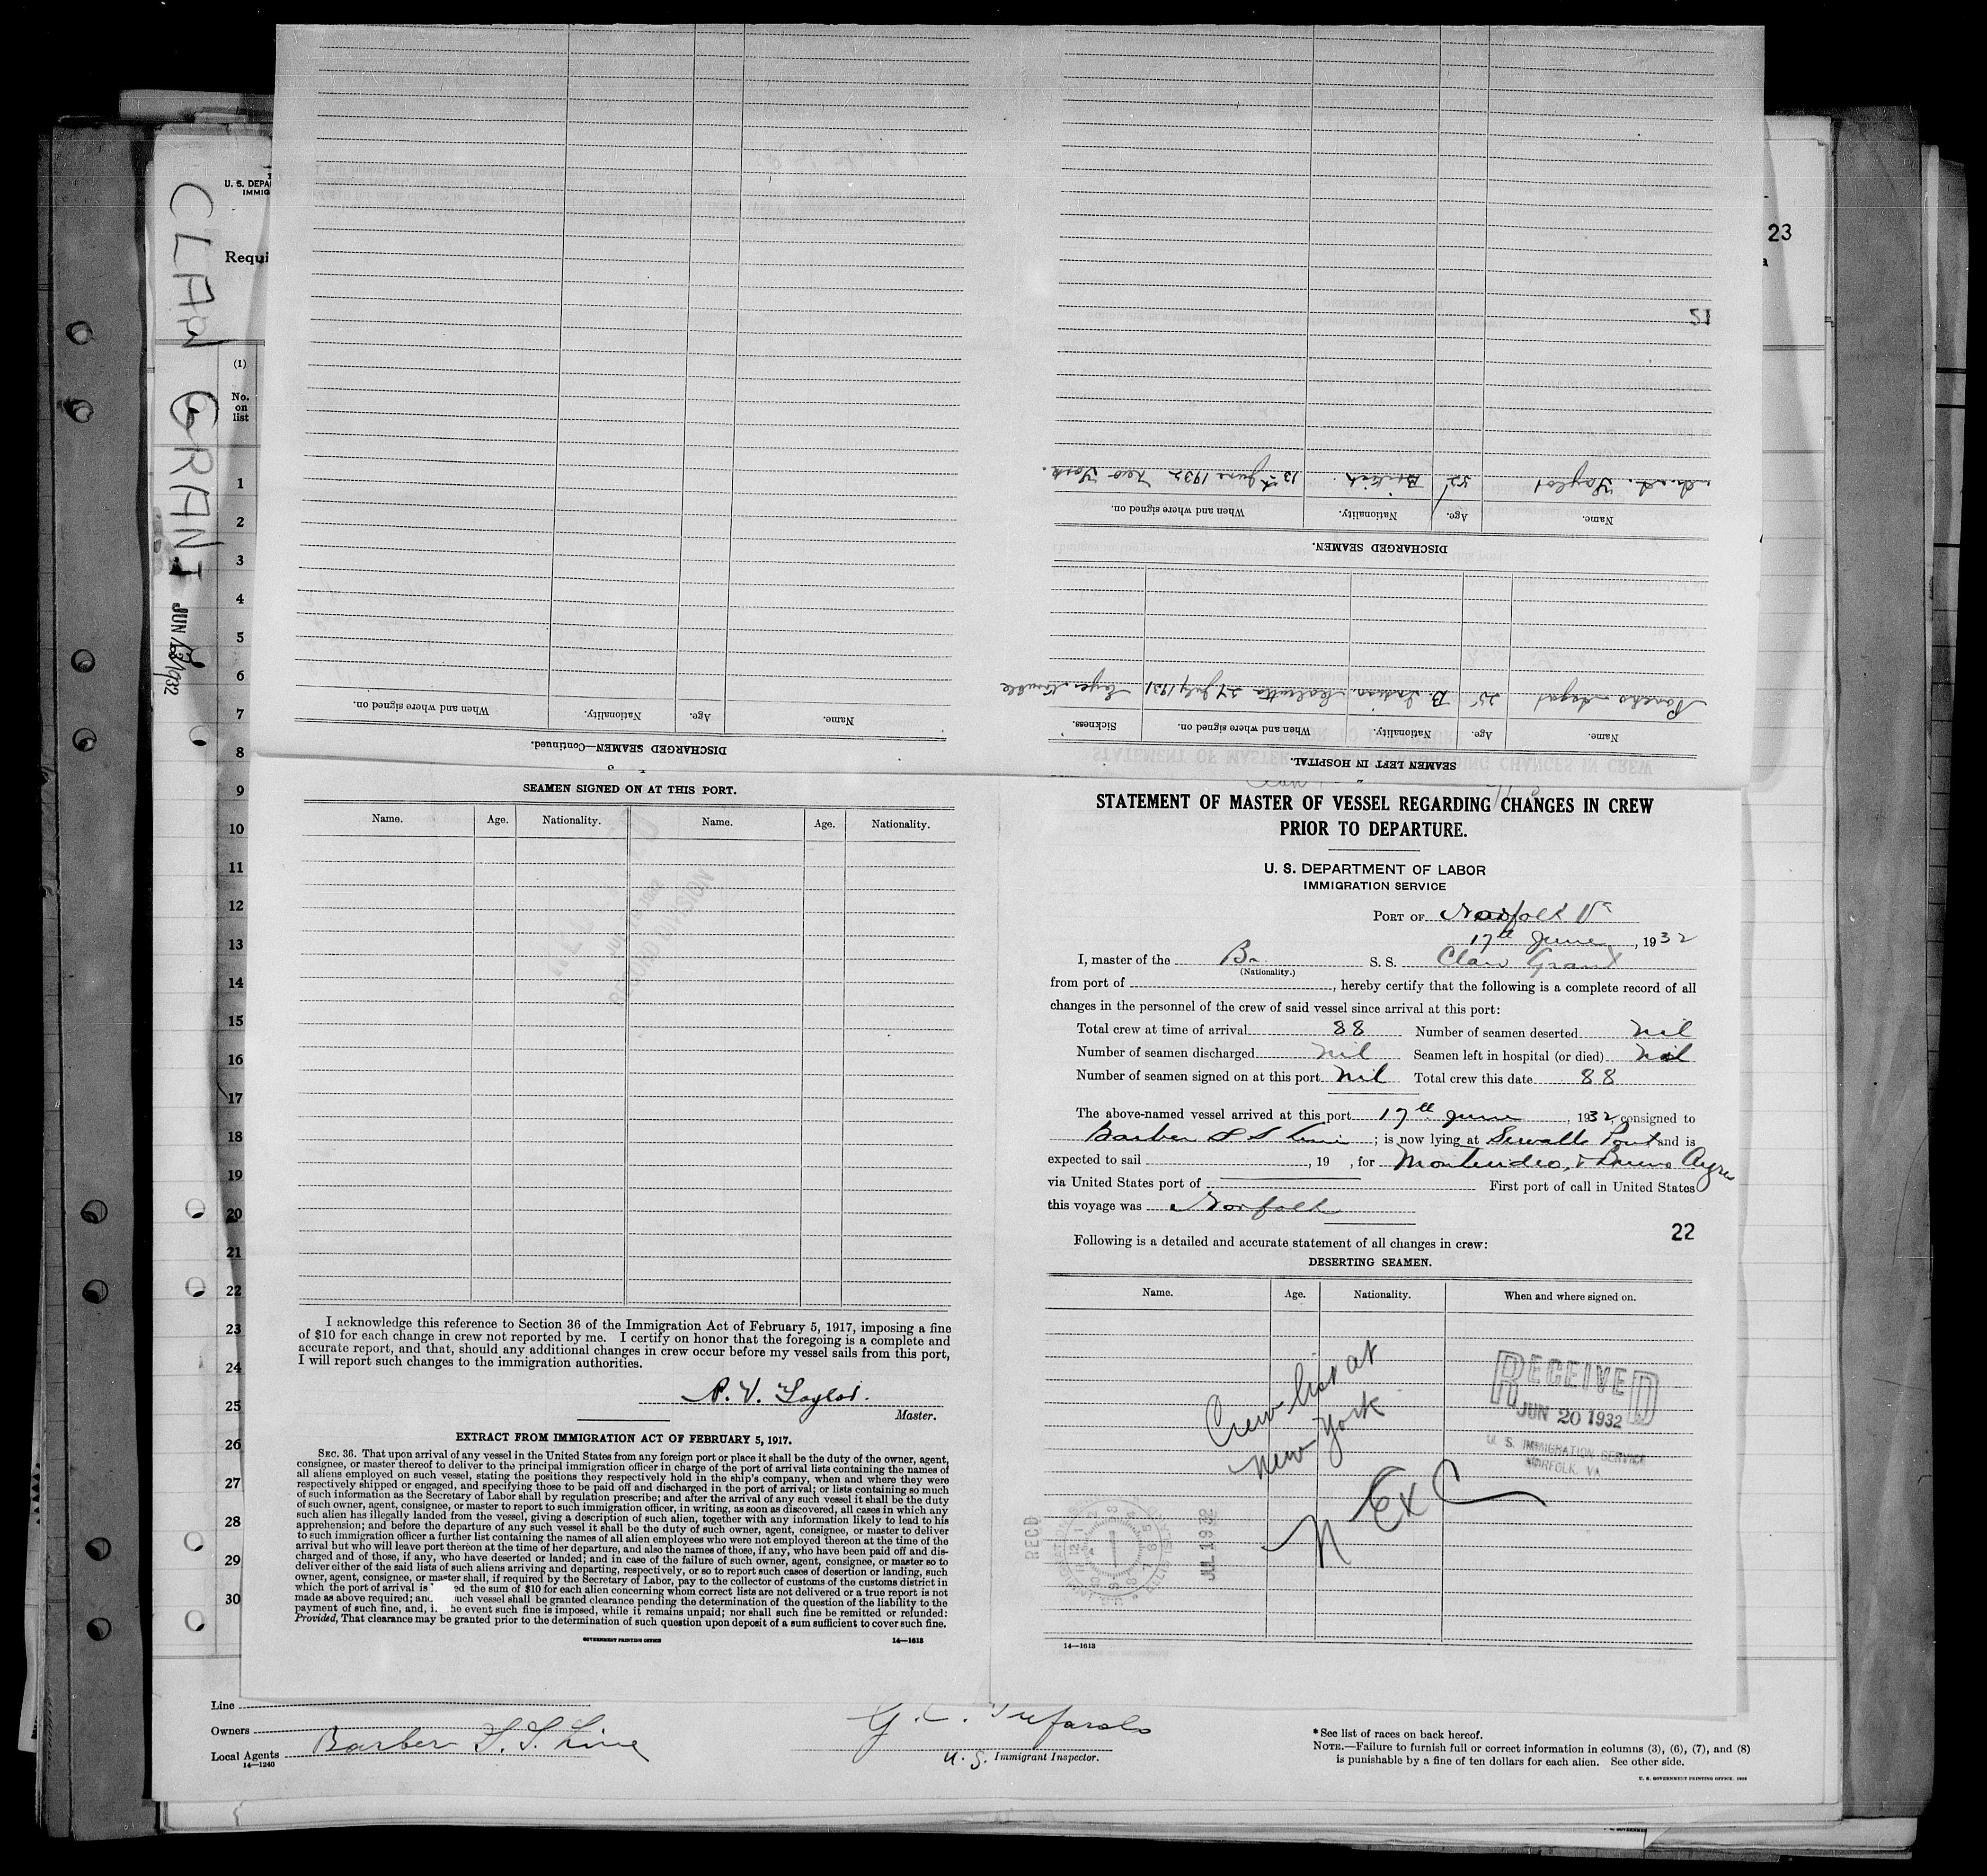 CLAN GRANT JUN 1932
U. S. DEPA
IMMIG
Requi
23
(1)
No.
on
list
1
2
3
4
5
6
7
8
9
10
11
12
13
14
15
16
17
18
19
20
21
22
23
24
25
26
27
28
29
30
21
DISCHARGED SEAMEN—Continued.
Name. Age. Nationality. When and where signed on.
SEAMEN LEFT IN HOSPITAL.
Name. Age. Nationality. When and where signed on. Sickness.
25 B. Indian Calcutta 24 July 1931
DISCHARGED SEAMEN.
Name. Age. Nationality. When and where signed on.
Taylor 52 British. 13th June 1932 New York.
SEAMEN SIGNED ON AT THIS PORT.
Name. Age. Nationality. Name. Age. Nationality.
I acknowledge this reference to Section 36 of the Immigration Act of February 5, 1917, imposing a fine
of $10 for each change in crew not reported by me. I certify on honor that the foregoing is a complete and
accurate report, and that, should any additional changes in crew occur before my vessel sails from this port,
I will report such changes to the immigration authorities.
P. V. Taylor.
Master.
EXTRACT FROM IMMIGRATION ACT OF FEBRUARY 5, 1917.
SEC. 36. That upon arrival of any vessel in the United States from any foreign port or place it shall be the duty of the owner, agent,
consignee, or master thereof to deliver to the principal immigration officer in charge of the port of arrival lists containing the names of
all aliens employed on such vessel, stating the positions they respectively hold in the ship's company, when and where they were
respectively shipped or engaged, and specifying those to be paid off and discharged in the port of arrival; or lists containing so much
of such information as the Secretary of Labor shall by regulation prescribe; and after the arrival of any such vessel it shall be the duty
of such owner, agent, consignee, or master to report to such immigration officer, in writing, as soon as discovered, all cases in which any
such alien has illegally landed from the vessel, giving a description of such alien, together with any information likely to lead to his
apprehension; and before the departure of any such vessel it shall be the duty of such owner, agent, consignee, or master to deliver
to such immigration officer a further list containing the names of all alien employees who were not employed thereon at the time of the
arrival but who will leave port thereon at the time of her departure, and also the names of those, if any, who have been paid off and dis-
charged and of those, if any, who have deserted or landed; and in case of the failure of such owner, agent, consignee, or master so to
deliver either of the said lists of such aliens arriving and departing, respectively, or so to report such cases of desertion or landing, such
owner, agent, consignee, or master shall, if required by the Secretary of Labor, pay to the collector of customs of the customs district in
which the port of arrival is ed the sum of $10 for each alien concerning whom correct lists are not delivered or a true report is not
made as above required; and uch vessel shall be granted clearance pending the determination of the question of the liability to the
payment of such fine, and, i he event such fine is imposed, while it remains unpaid; nor shall such fine be remitted or refunded:
Provided, That clearance may be granted prior to the determination of such question upon deposit of a sum sufficient to cover such fine.
GOVERNMENT PRINTING OFFICE 14—1613
STATEMENT OF MASTER OF VESSEL REGARDING CHANGES IN CREW
PRIOR TO DEPARTURE.
U. S. DEPARTMENT OF LABOR
IMMIGRATION SERVICE
PORT OF Norfolk Va
17th June, 1932
I, master of the Br S. S. Clan Grant
(Nationality.)
from port of , hereby certify that the following is a complete record of all
changes in the personnel of the crew of said vessel since arrival at this port:
Total crew at time of arrival 88 Number of seamen deserted nil
Number of seamen discharged nil Seamen left in hospital (or died) nil
Number of seamen signed on at this port nil Total crew this date 88
The above-named vessel arrived at this port 17th June, 1932, consigned to
Barber S S Line ; is now lying at Sewalls Point and is
expected to sail , 19 , for Montevideo, & Buenos Ayres
via United States port of First port of call in United States
this voyage was Norfolk
22
Following is a detailed and accurate statement of all changes in crew:
DESERTING SEAMEN.
Name. Age. Nationality. When and where signed on.
Crew list at
New York
N Ex C
RECEIVED
JUN 20 1932
U. S. IMMIGRATION SERVICE
NORFOLK, VA
RECD
14—1613
Line
Owners
Local Agents Barber S. S. Line
14—1240
U. S. Immigrant Inspector.
*See list of races on back hereof.
NOTE.—Failure to furnish full or correct information in columns (3), (6), (7), and (8)
is punishable by a fine of ten dollars for each alien. See other side.